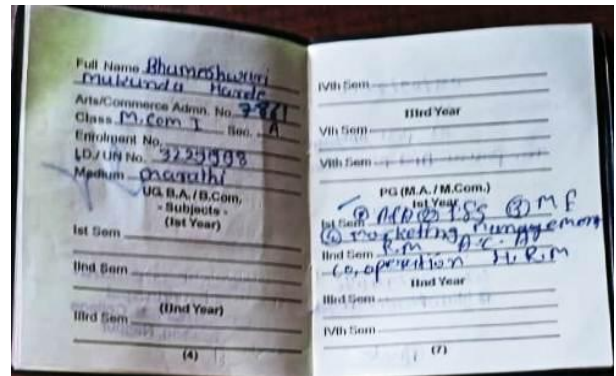 Full Name Bhumeshwari
Mukunda Harde
Arts/Commerce Admn. No. 7861
Class M.Com I Sec. A
Enrolment No.
I.D./UN No. 3229998
Medium marathi
UG. B.A. / B.Com,
- Subjects -
(Ist Year)
Ist Sem
IInd Sem
(IInd Year)
IIIrd Sem
(4)
IVth Sem
IIIrd Year
Vth Sem
VIth Sem
PG (M.A. / M.Com.)
Ist Year
Ist Sem ① ② ③ M E
④ marketing management
IInd Sem R.M A.C.A
Co, operation H.R.M
IInd Year
IIIrd Sem
IVth Sem
(7)